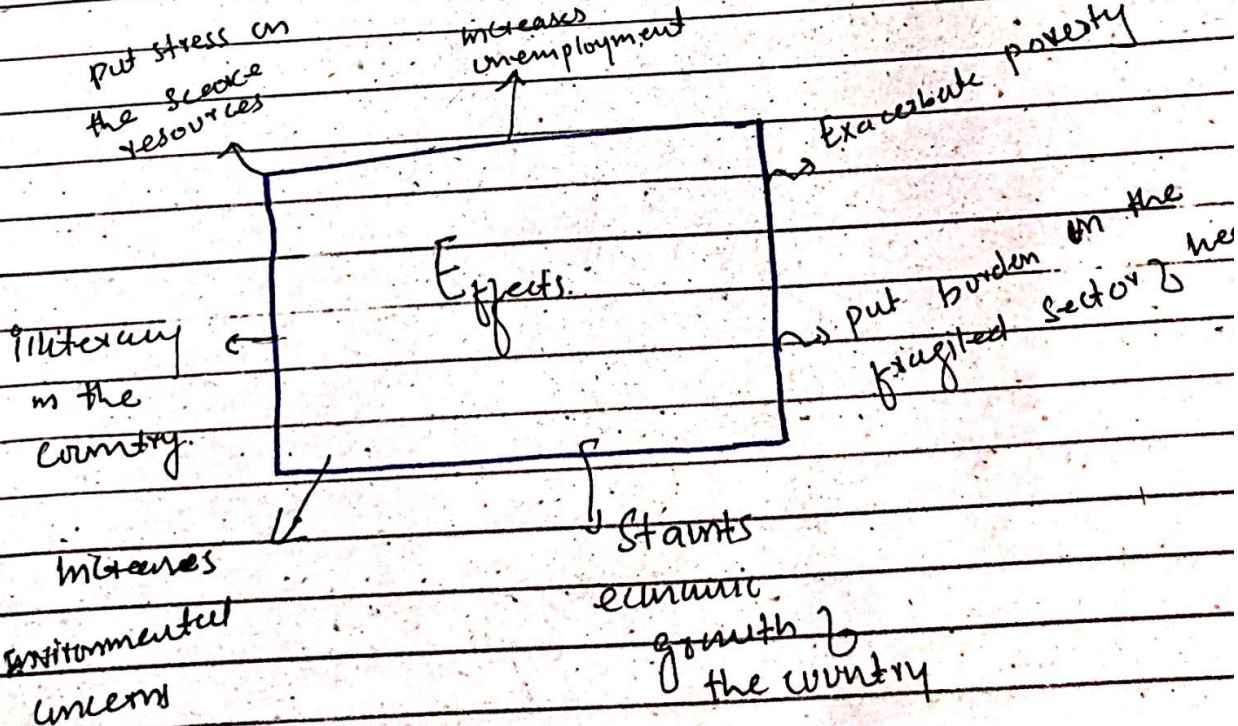 put stress on
the scarce
resources
increases
unemployment
Exacerbate poverty
Effects.
put burden on the
fragiled sector of
illiteracy
in the
country.
increases
environmental
concerns
Staunts
economic
growth of
the country